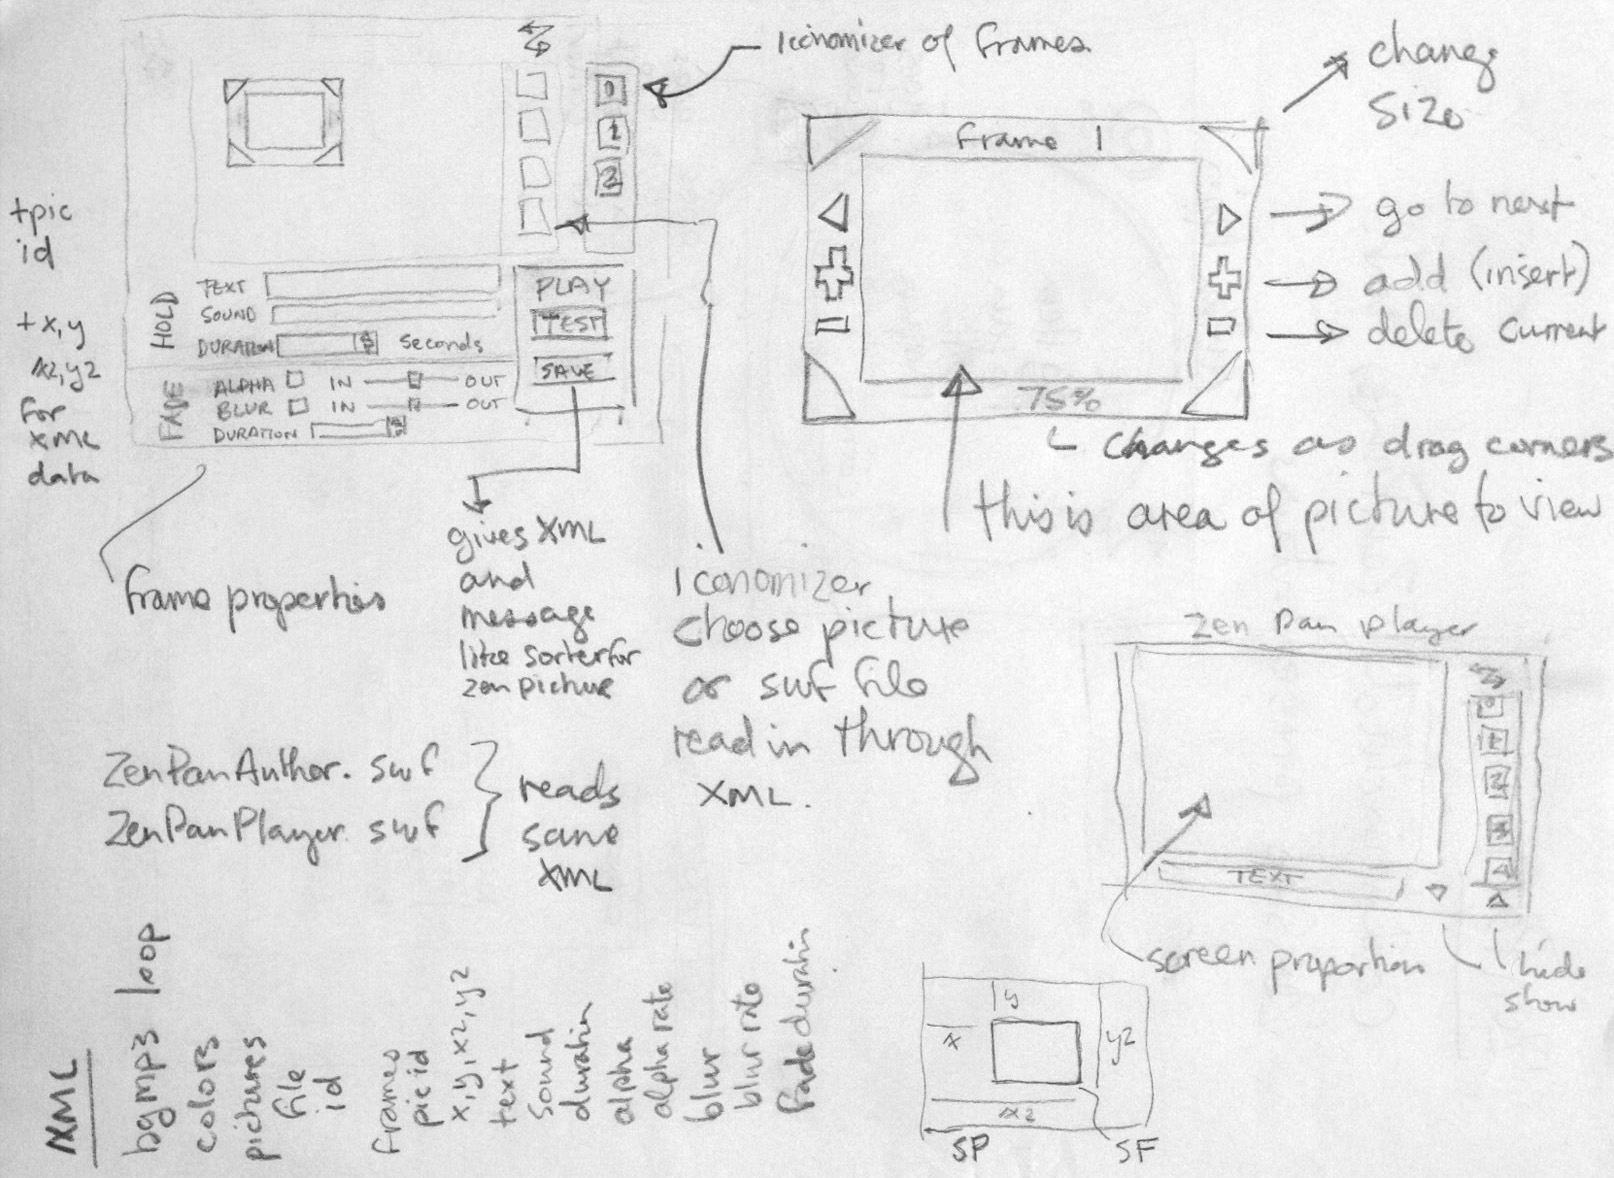 Iconomizer of frames
change
size
Frame 1
0
1
2
+pic
id
go to next
add (insert)
delete current
HOLD
TEXT
SOUND
DURATION
seconds
PLAY
TEST
SAVE
+x,y
x2,y2
for
xml
data
FADE
ALPHA IN OUT
BLUR IN OUT
DURATION
75%
changes as drag corners
this is area of picture to view
frame properties
gives XML
and
message
like sorter for
zen picture
Iconomizer
choose picture
or swf file
read in through
XML.
Zen Pan Player
0
1
2
3
4
TEXT
screen proportion
hide
show
ZenPanAuthor.swf
ZenPanPlayer.swf
reads
same
XML
XML
bg mp3 loop
colors
pictures
file
id
frames
pic id
x,y,x2,y2
text
sound
duration
alpha
alpha rate
blur
blur rate
fade duratin
y
x
y2
x2
SP
SF